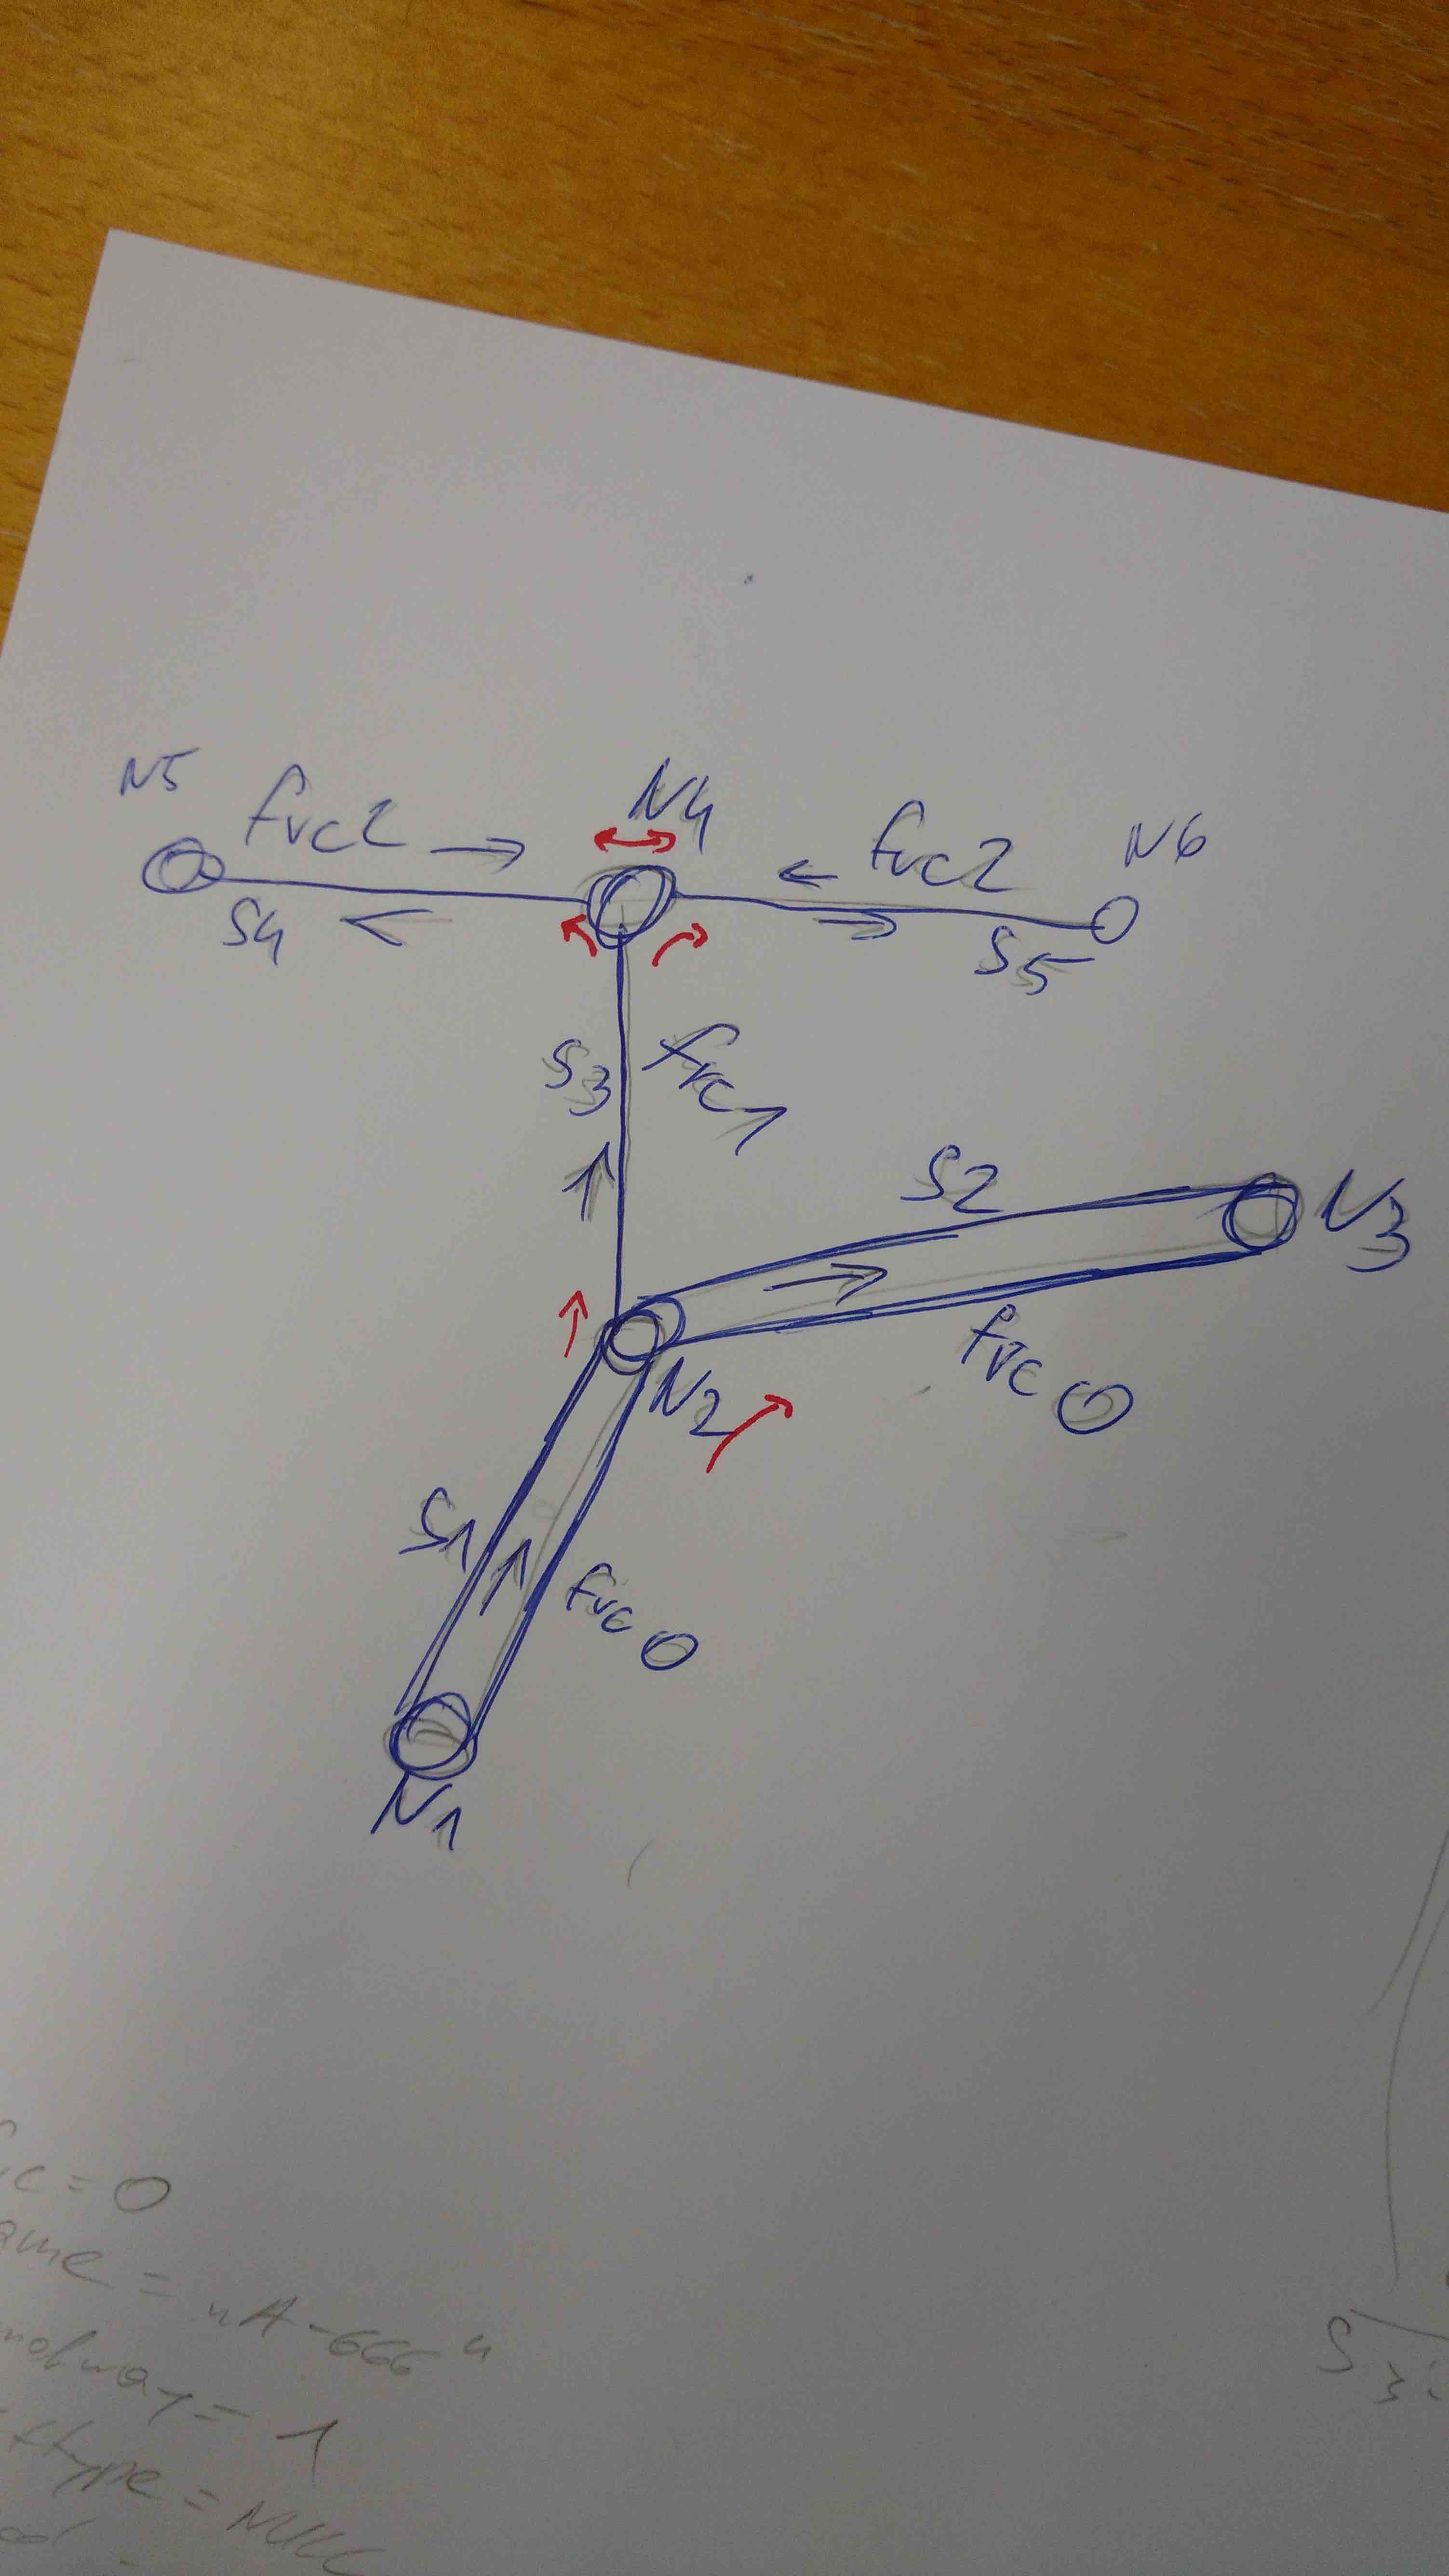 N5
frc2
N4
frc2
N6
S4
S5
S3
frc1
S2
N3
frc 0
N2
S1
frc 0
N1
c=0
ame = "A-666"
= 1
type = NULL
S3